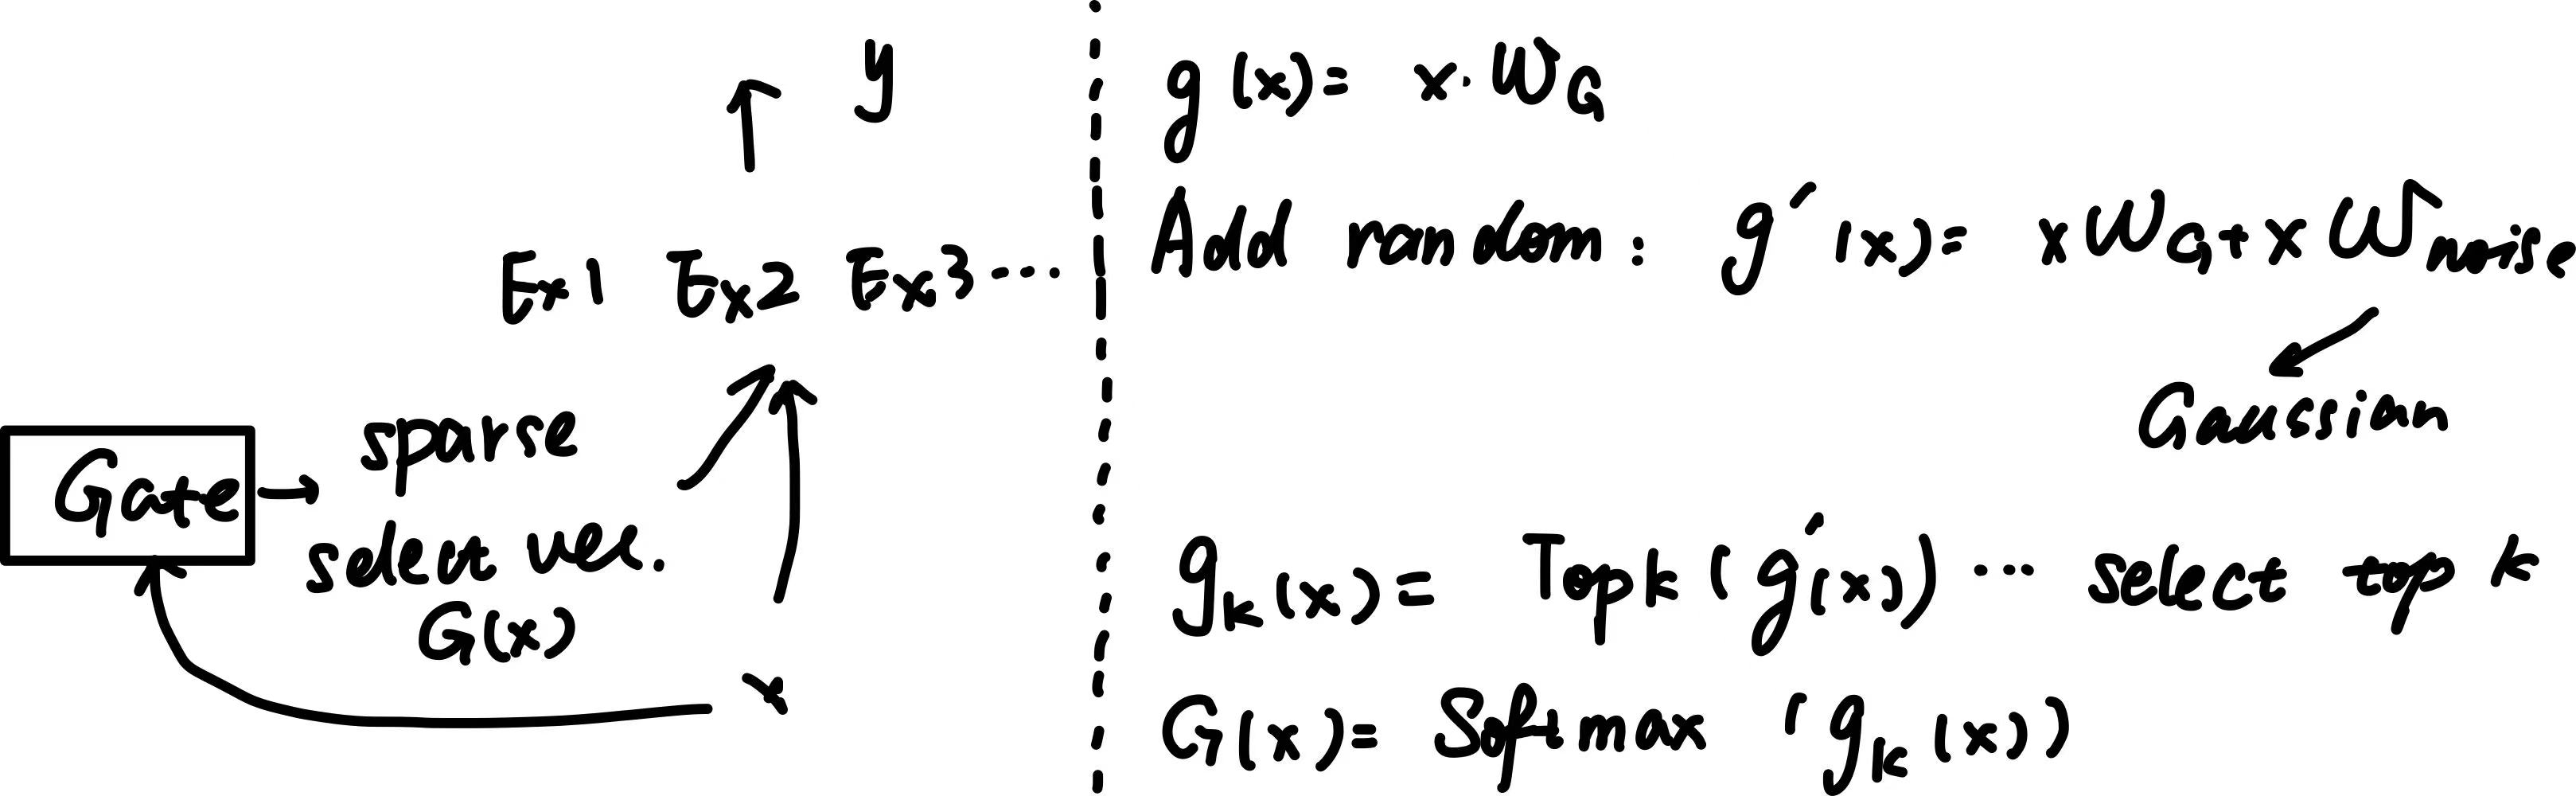 y
Ex1 Ex2 Ex3 ...
Gate
sparse
select vec.
G(x)
x
g(x) = x·W_G
Add random: g'(x) = xW_G + xW_noise
Gaussian
g_k(x) = Topk(g'(x)) ... select top k
G(x) = Softmax (g_k(x))